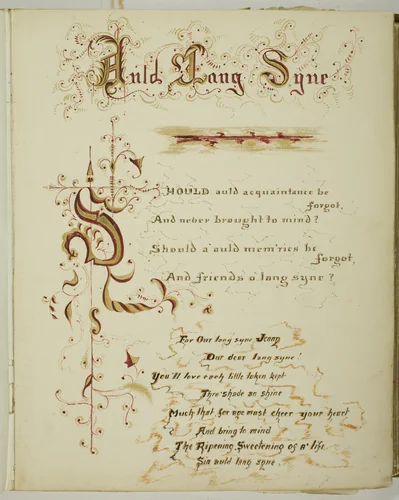 Auld Lang Syne
SHOULD auld acquaintance be
forgot,
And never brought to mind?
Should a' auld mem'ries be
forgot,
And friends o' lang syne?
For Our lang syne Jenny
Our dear lang syne!
You'll love each little token kept
Thro' shade an shine
Much that, for age must cheer your heart
And bring to mind
The Ripening, Sweetening of a' life
Sin auld lang syne.